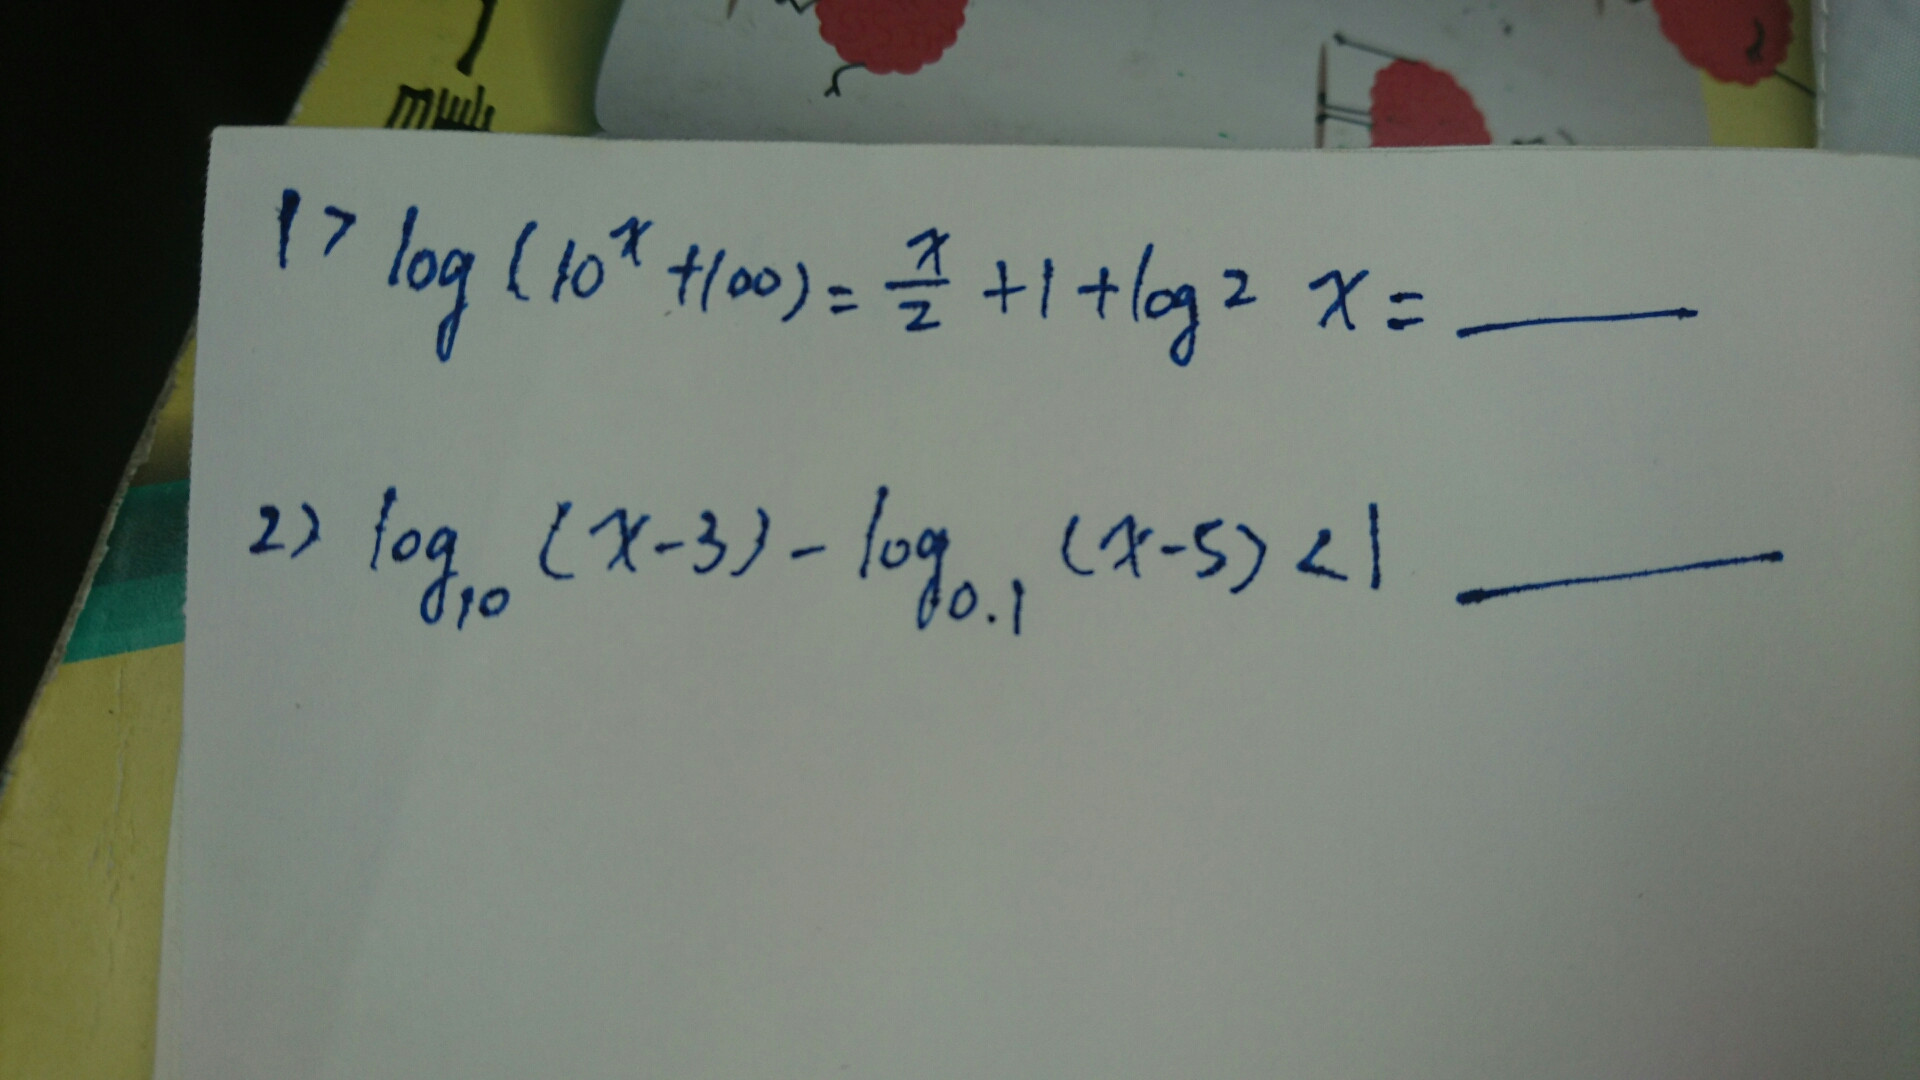 1> log (10^x +100) = x/2 +1 + log 2 x = ____
2) log_10 (x-3) - log_0.1 (x-5) < 1 ____